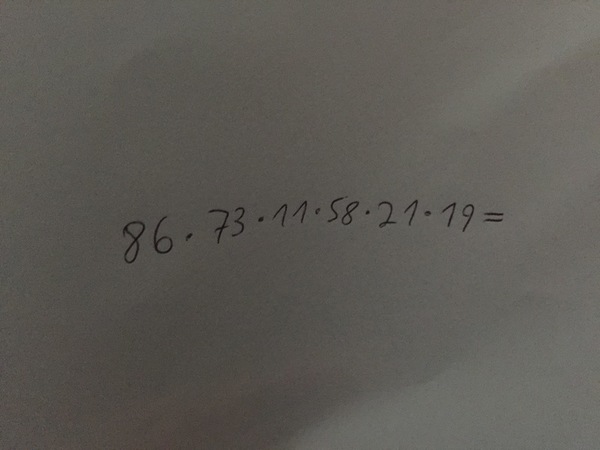 86·73·11·58·21·19=